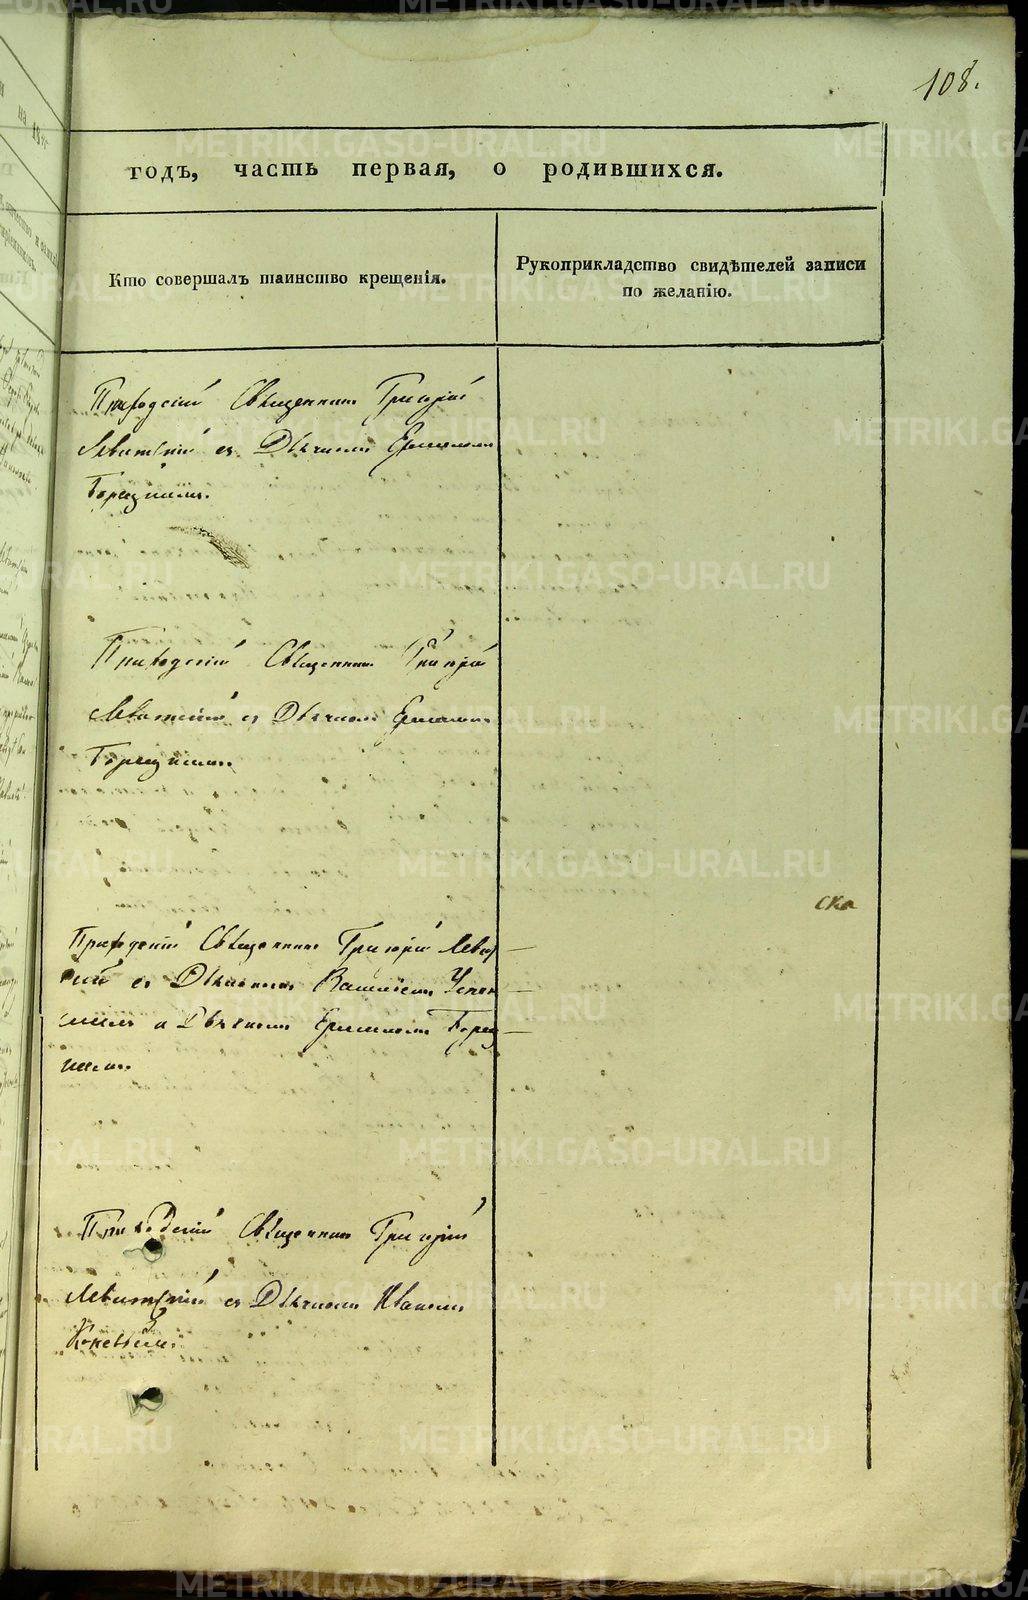 108.
годъ, часть первая, о родившихся.
Кто совершалъ таинство крещенія.
Рукоприкладство свидѣтелей записи
по желанію.
Приходскій Священникъ Григорій
Левитскій съ Дьячкомъ Ермиломъ
Приходскій Священникъ Григорій
Левитскій съ Дьячкомъ Ермиломъ
ска
Приходскій Священникъ Григорій Левит
скій съ Діакономъ
и Дьячкомъ Ермиломъ
Приходскій Священникъ Григорій
Левитскій съ Дьячкомъ Иваномъ
METRIKI.GASO-URAL.RU